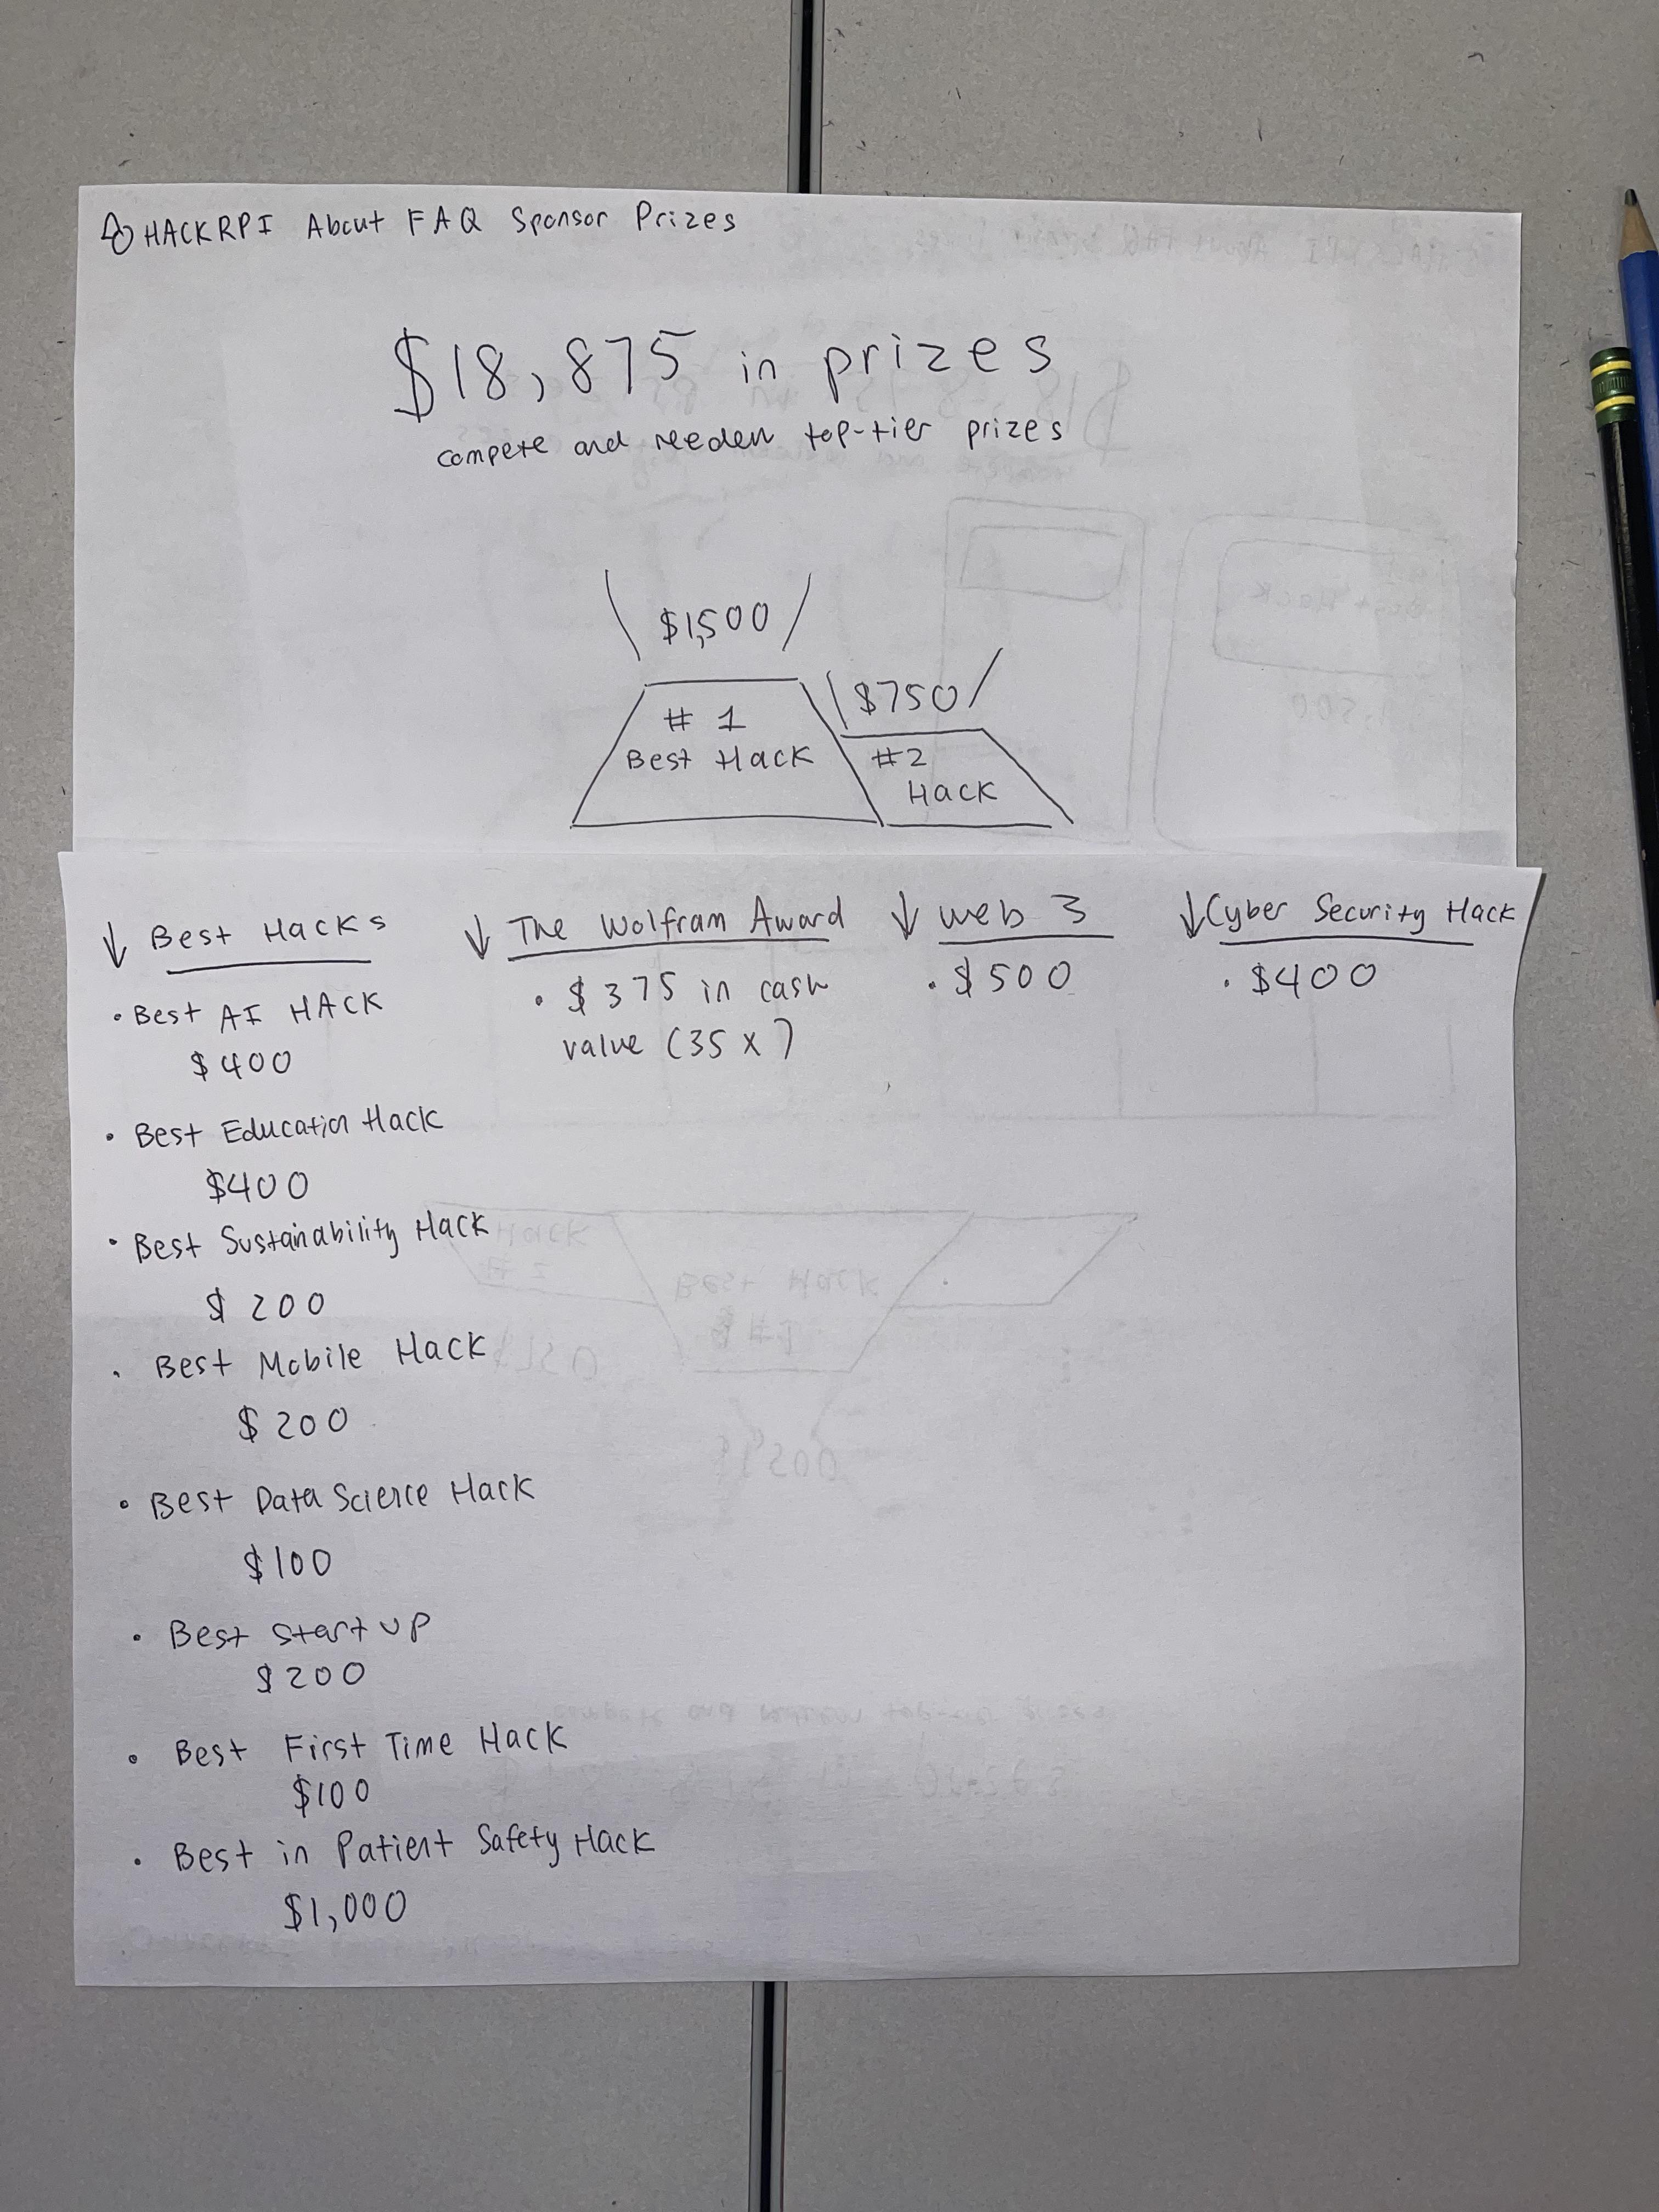 HACKRPI About FAQ Sponsor Prizes
$18,875 in prizes
compete and top-tier prizes
$1,500
$750
# 1
Best Hack
#2
Hack
↓ Best Hacks
• Best AI HACK
$400
• Best Education Hack
$400
• Best Sustainability Hack
$200
• Best Mobile Hack
$200
• Best Data Science Hack
$100
• Best Startup
$200
• Best First Time Hack
$100
• Best in Patient Safety Hack
$1,000
↓ The Wolfram Award
• $375 in cash
value (35 x )
↓ web 3
• $500
↓ Cyber Security Hack
• $400